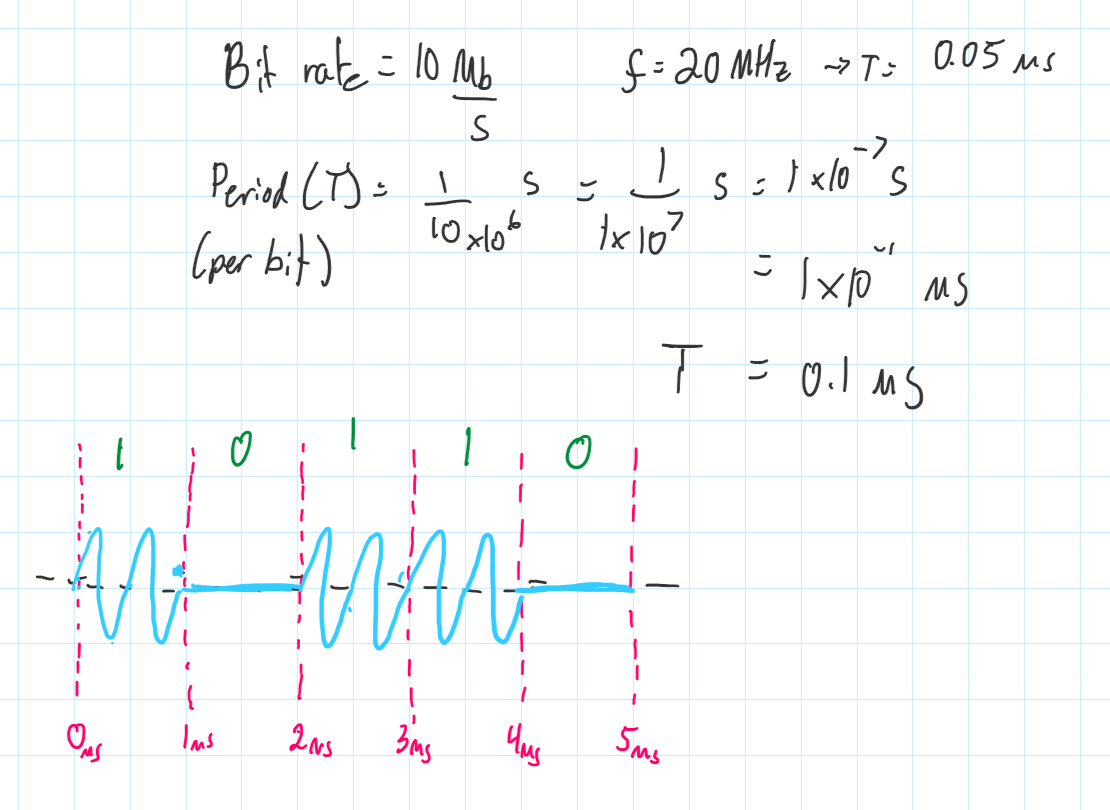 Bit rate = 10 Mb/s f = 20 MHz → T = 0.05 μs
Period (T) = 1/10×10⁶ s = 1/1×10⁷ s = 1×10⁻⁷ s
(per bit)
= 1×10⁻¹ μs
T = 0.1 μs
1 0 1 1 0
0μs 1μs 2μs 3μs 4μs 5μs